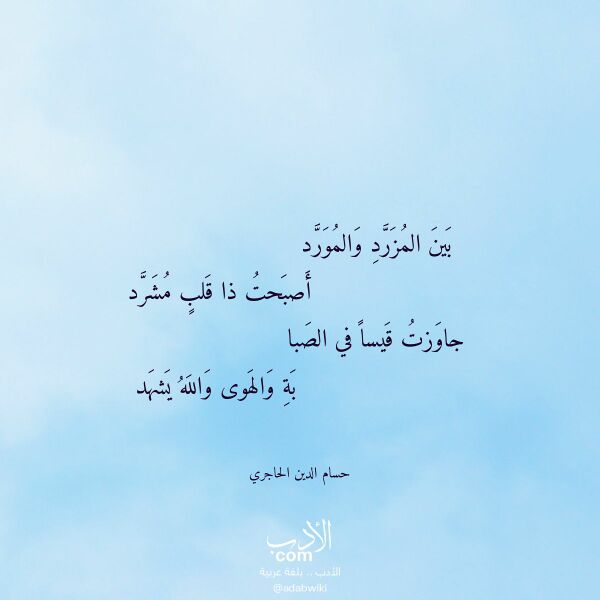 بَينَ المُزَرَّدِ وَالمُوَرَّد
أَصبَحتُ ذا قَلبٍ مُشَرَّد
جاوَزتُ قَيساً في الصَبا
بَةِ وَالهَوى وَاللَهُ يَشهَد
حسام الدين الحاجري
الأدب
.com
الأدب .. بلغة عربية
@adabwiki